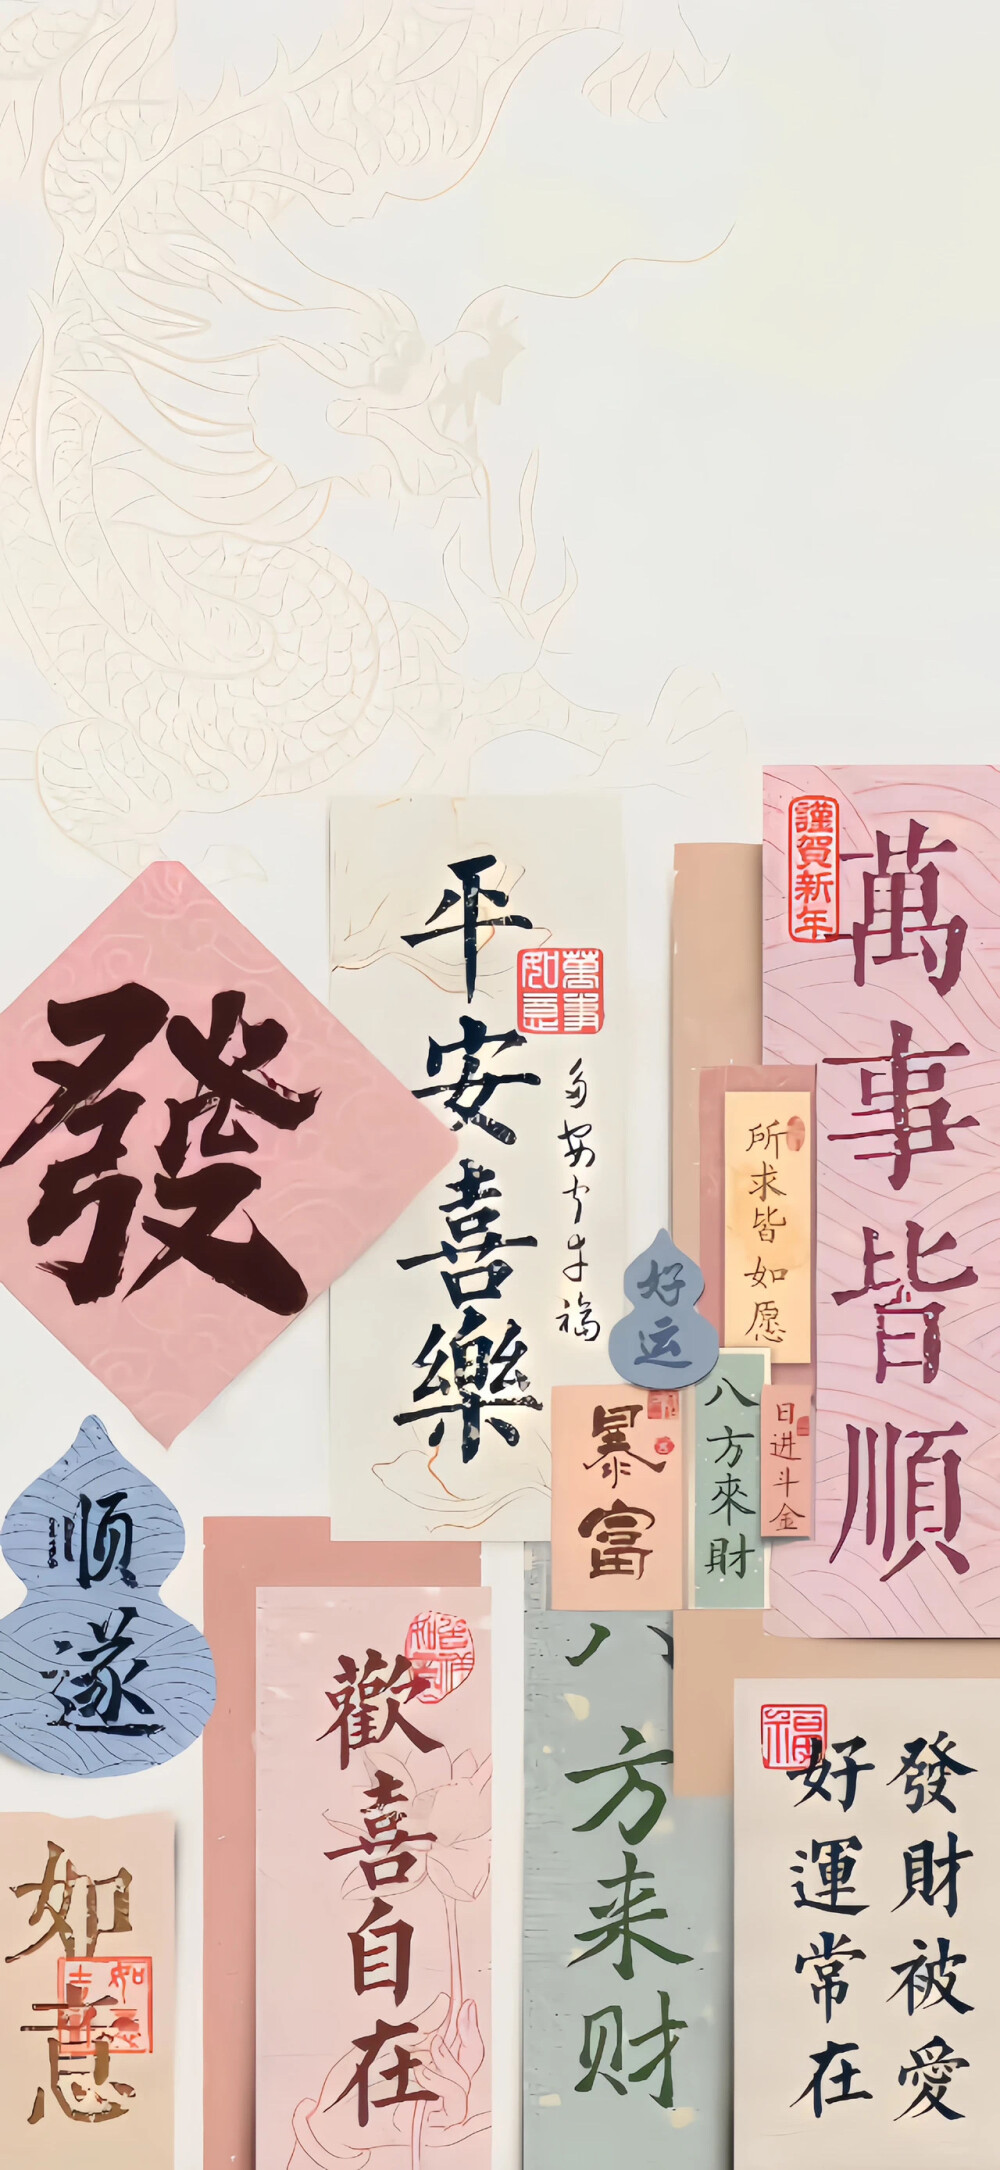 謹賀新年
萬事皆順
平安喜樂
萬事如意
發
所求皆如愿
好运
暴富
八方來財
日进斗金
顺遂
歡喜自在
八方来财
福
發財被愛
好運常在
如意